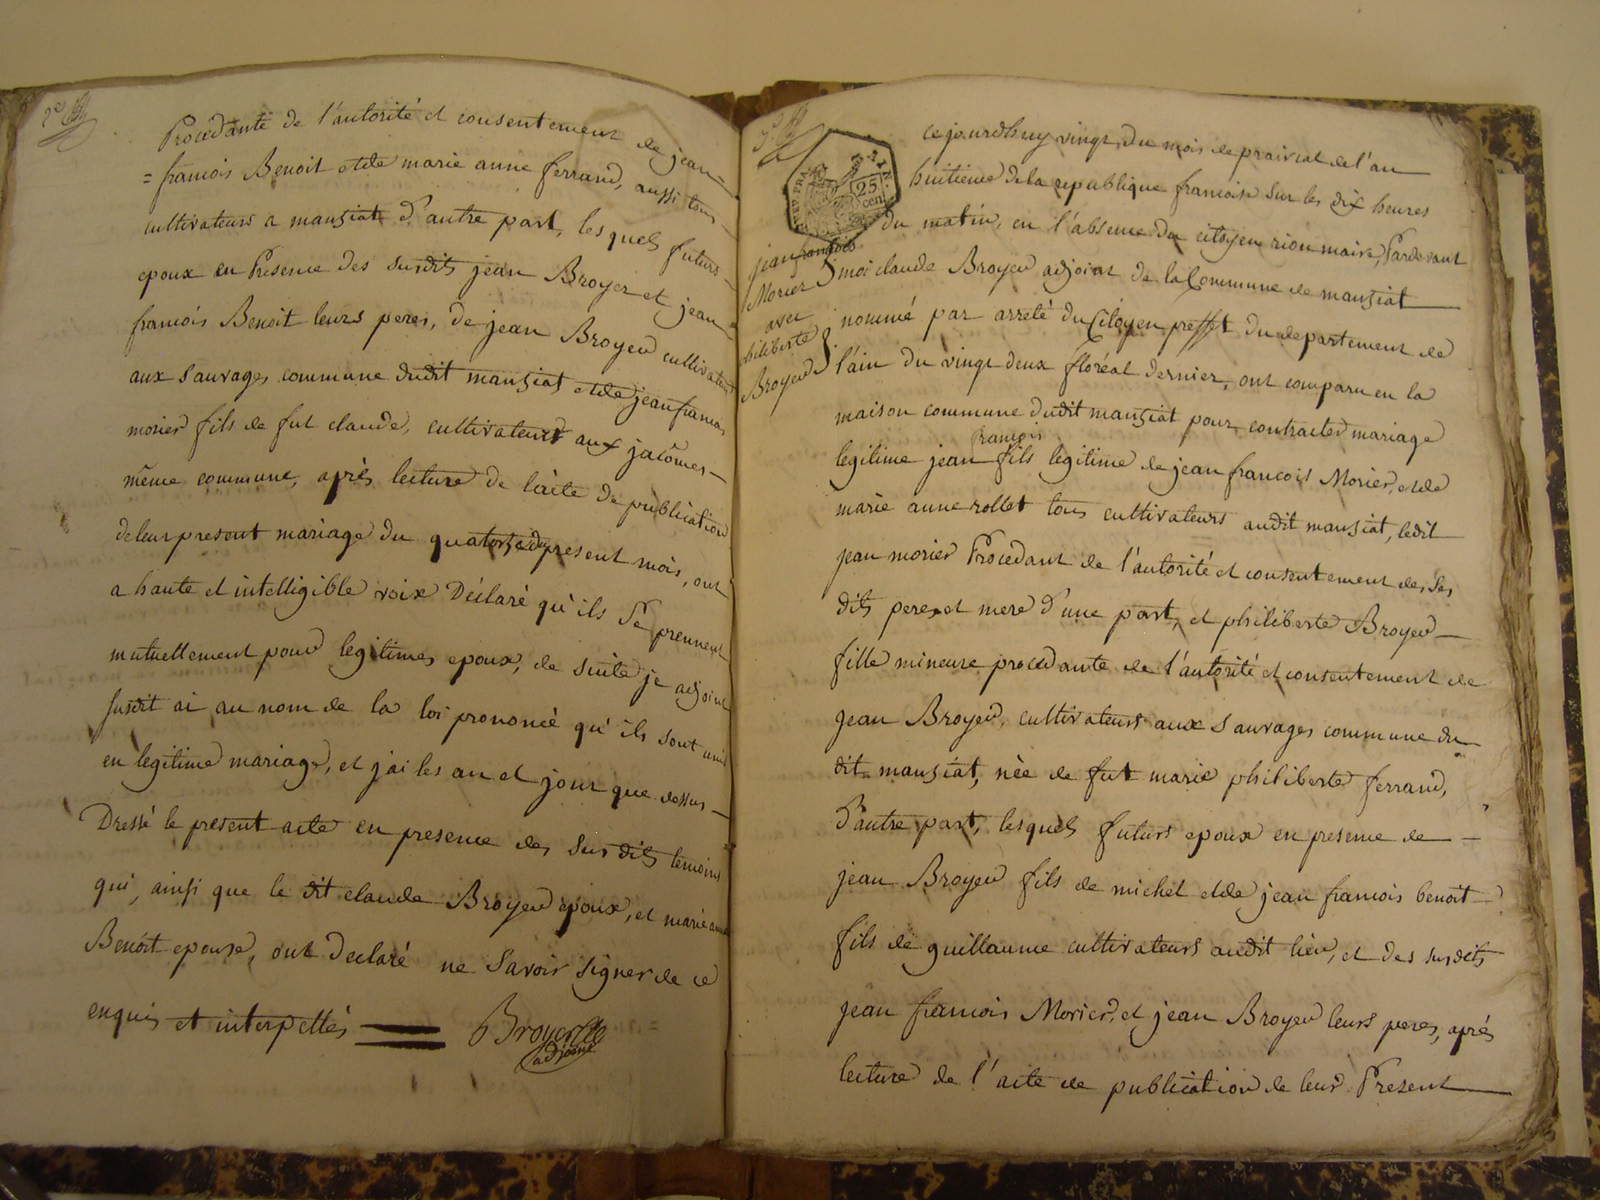 2e
Procédante de l'autorité et consentement de jean =
= francois Benoit et de marie anne ferrand, aussi tous
cultivateurs a manziat d'autre part, lesquels futurs
epoux en Presence des susdits jean Broyer et jean
francois Benoit leurs peres, de jean Broyer cultivateur
aux sauvages commune dudit manziat et de jean francois
morier fils de fut claude, cultivateurs aux jacômes
même commune, après lecture de l'acte de publication
de leur present mariage du quatorze du present mois, ont
a haute et intelligible voix Déclaré qu'ils Se prennent
mutuellement pour legitimes epoux, de suite je adjoint
susdit ai au nom de la loi prononcé qu'ils sont unis
en legitime mariage, et j'ai les an et jour que dessus
Dressé le present acte en presence des sus dits temoins
qui, ainsi que le dit claude Broyer epoux, et marie anne
Benoit epouse, ont declaré ne Savoir signer de ce
enquis et interpellés
Broyer
adjoint
AIN
25
cent
jean francois
Morier
avec
philiberte
Broyer
ce jourdhuy vingt du mois de prairial de l'an
huitieme de la republique francoise sur les dix heures
du matin, en l'absence du citoyen rion maire, Pardevant
moi claude Broyer adjoint de la Commune de manziat
nommé par arrêté du Citoyen preffet du departement de
l'ain du vingt deux floréal dernier, ont comparu en la
maison commune dudit manziat pour contracter mariage
francois
legitime jean fils legitime de jean francois Morier, et de
marie anne rollet tous cultivateurs audit manziat, ledit
jean morier Procedant de l'autorité et consentement de ses
dits pere et mere d'une part, et philiberte Broyer
fille mineure procedante de l'autorité et consentement de
jean Broyer, cultivateurs aux sauvages commune du
dit manziat, née de fut marie philiberte ferrand,
d'autre part, lesquels futurs epoux en presence de
jean Broyer fils de michel et de jean francois benoit
fils de guillaume cultivateurs audit lieu, et des susdits
jean francois Morier, et jean Broyer leurs peres, après
lecture de l'acte de publication de leur Present